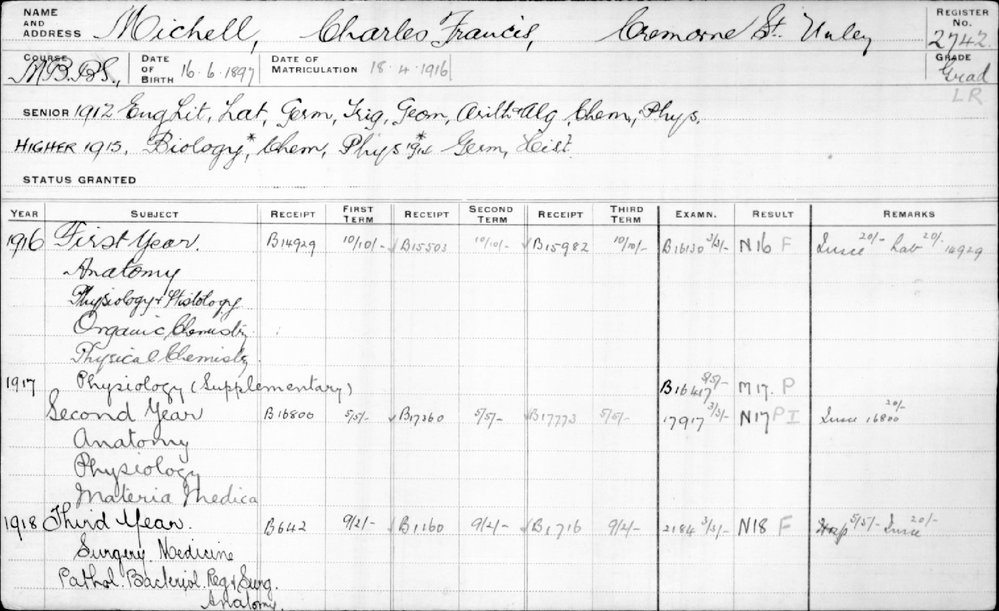 NAME AND ADDRESS Michell, Charles Francis, Cremorne St. Unley REGISTER No. 2742
COURSE M.B. B.S., DATE OF BIRTH 16.6.1897 DATE OF MATRICULATION 18.4.1916 GRADE Grad
LR
SENIOR 1912 Eng Lit, Lat, Germ, Trig, Geom, Arith & Alg, Chem, Phys.
HIGHER 1915. Biology,* Chem, Phys* 1914 Germ, Hist
STATUS GRANTED
YEAR SUBJECT RECEIPT FIRST TERM RECEIPT SECOND TERM RECEIPT THIRD TERM EXAMN. RESULT REMARKS
1916 First Year. B14929 10/10/- B15503 10/10/- B15982 10/10/- B16130 3/3/- N16 F 20/- Lab 20/- 14929
Anatomy
Physiology & Histology
Organic Chemistry
Physical Chemistry
1917 Physiology (Supplementary) B16417 5/5/- M17. P
Second Year B16800 5/5/- B17360 5/5/- B17773 5/5/- 17917 3/3/- N17 P I 16800 20/-
Anatomy
Physiology
Materia Medica
1918 Third Year. B642 9/2/- B1160 9/2/- B1716 9/2/- 2184 3/3/- N18 F Hosp 5/5/- 20/-
Surgery. Medicine
Pathol. Bacteriol. Reg & Surg.
Anatomy.